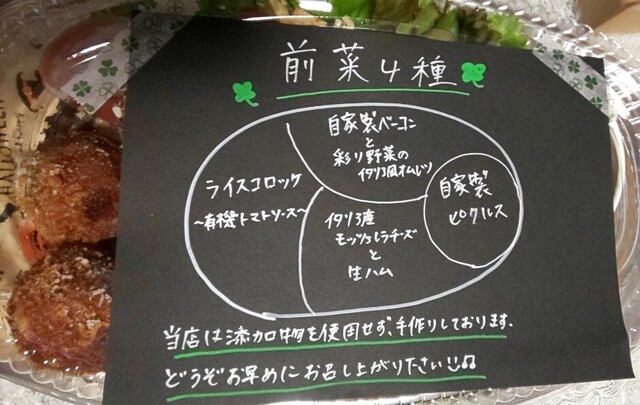 前菜4種
自家製ベーコン
と
彩り野菜の
イタリア風オムレツ
ライスコロッケ
~有機トマトソース~
自家製
ピクルス
イタリア産
モッツァレラチーズ
と
生ハム
当店は添加物を使用せず、手作りしております。
どうぞお早めにお召し上がり下さい